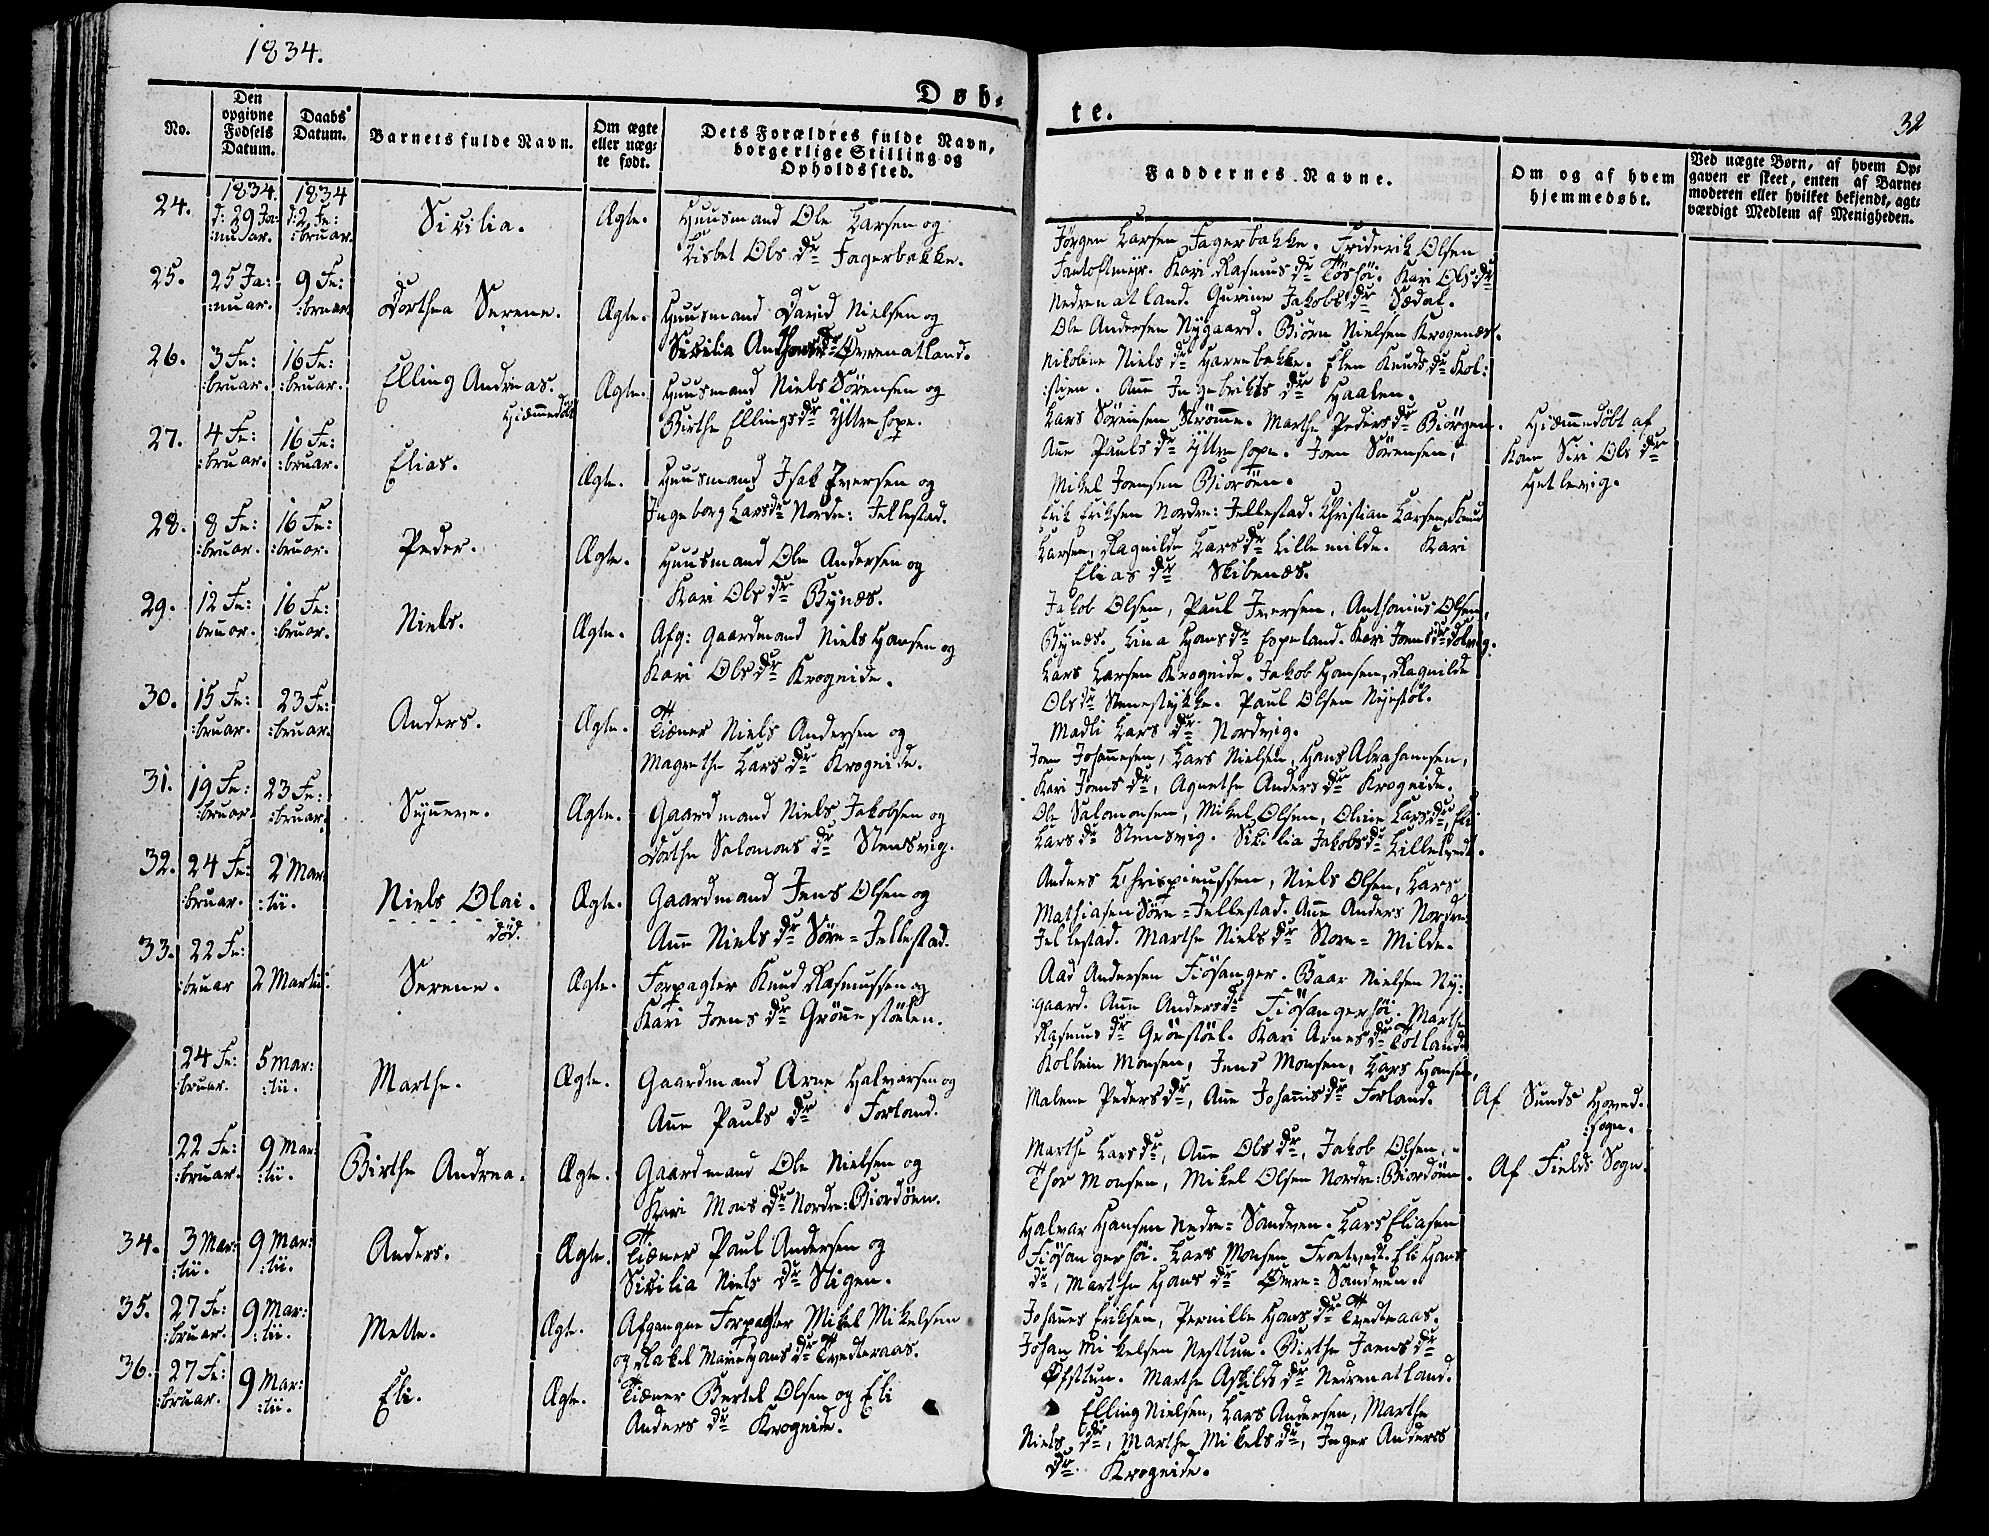 1834.
Døb-
te.
32
No.
Den opgivne Fødsels Datum.
Daabs Datum.
Barnets fulde Navn.
Om ægte eller uægte født.
Dets Forældres fulde Navn, borgerlige Stilling og Opholdssted.
Faddernes Navne.
Om og af hvem hjemmedøbt.
Ved uægte Børn, af hvem Opgaven er skeet, enten af Barnemoderen eller hvilket bekjendt, agtværdigt Medlem af Menigheden.
24.
1834. d: 29 Ja:
:nuar.
1834 d: 2 Fe:
:bruar.
Sicilia.
Ægte.
Huusmand Ole Larsen og
Lisbet Ols dr Fagerbakke.
Jørgen Larsen Fagerbakke. Friderik Olsen
Fantoftmyr. Kari Rasmus dr Tøshöi. Kari Ols dr
Nedrenatland. Gurine Jakobs dr Sædal.
25.
25 Ja:
:nuar.
9 Fe:
:bruar.
Dorthea Serene.
Ægte.
Huusmand David Nielsen og
Sicilia Anthons dr Øvrenatland.
Ole Andersen Nygaard. Biörn Nielsen Krogenæs.
Nikoline Niels dr Harrebakke. Elen Knuds dr Kol:
:stien. Anne Ingebrikts dr Haalen.
26.
3 Fe:
:bruar.
16 Fe:
:bruar.
Elling Andreas.
Hiemmedöbt
Ægte.
Huusmand Niels Sörensen og
Birthe Ellings dr Yttrehope.
Lars Sörensen Strömme. Marthe Peders dr Biörgen.
Anne Pauls dr Yttrehope. Joen Sörensen,
Mikel Joensen Bioröen.
Hiemmedöbt af
Kone Siri Ols dr
Hetlevig.
27.
4 Fe:
:bruar.
16 Fe:
:bruar.
Elias.
Ægte.
Huusmand Isak Iversen og
Ingeborg Lars dr Nordre: Jellestad.
Erik Eriksen Nordre: Jellestad. Christian Larsen, Knud
Larsen, Ragnilde Lars dr Lillemilde. Kari
Elias dr Skibenæs.
28.
8 Fe:
:bruar.
16 Fe:
:bruar.
Peder.
Ægte.
Huusmand Ole Andersen og
Kari Ols dr Bynæs.
Jakob Olsen, Paul Iversen, Anthonius Olsen,
Bynæs. Lina Hans dr Espeland. Kari Joens dr Dolvig.
29.
12 Fe:
bruar.
16 Fe:
:bruar.
Niels.
Ægte.
Afg: Gaardmand Niels Hansen og
Kari Ols dr Krogeide.
Lars Larsen Krogeide. Jakob Hansen, Ragnilde
Ols dr Stenestykke. Paul Olsen Nyestöl.
Madli Lars dr Nordvig.
30.
15 Fe:
:bruar.
23 Fe:
:bruar.
Anders.
Ægte.
Tiener Niels Andersen og
Magrethe Lars dr Krogeide.
Joen Johannesen, Lars Nielsen, Hans Abrahamsen,
Kari Joens dr, Agnethe Anders dr Krogeide.
31.
19 Fe:
:bruar.
23 Fe:
:bruar.
Synneve.
Ægte.
Gaardmand Niels Jakobsen og
Dorthe Salomons dr Stensvig.
Ole Salomonsen, Mikel Olsen, Oline Lars dr, Eli
Lars dr Stensvig. Sicilia Jakobs dr Lilletvedt.
32.
24 Fe:
:bruar.
2 Mar:
:tii.
Niels Olai.
död.
Ægte.
Gaardmand Jens Olsen og
Anne Niels dr Söre=Jellestad.
Anders Chrispinussen, Niels Olsen, Lars
Mathiasen Söre=Jellestad. Anne Anders Nordre:
Jellestad. Marthe Niels dr Store=Milde.
33.
22 Fe:
:bruar
2 Martii:
Serene.
Ægte.
Forpagter Knud Rasmussen og
Kari Joens dr Grönnestölen.
Aad Andersen Fiösanger. Baar Nielsen Ny:
:gaard. Anne Anders dr Fiösangerhöi. Marthe
Rasmus dr Grönstöel. Kari Arnes dr Totland.
24 Fe:
:bruar.
5 Mar:
:tii.
Marthe.
Ægte.
Gaardmand Arne Halvorsen og
Anne Pauls dr Forland.
Kolbein Monsen, Jens Monsen, Lars Hansen,
Malene Peders dr, Anne Johannis dr Forland.
Af Sunds Hoved:
:sogn.
22 Fe:
:bruar.
9 Mar:
:tii.
Birthe Andrea.
Ægte.
Gaardmand Ole Nielsen og
Kari Mons dr Nordre: Biordöen.
Marthe Lars dr, Anne Ols dr, Jakob Olsen,
Thor Monsen, Mikel Olsen Nordre: Biordöen.
Af Fields Sogn.
34.
3 Mar:
:tii.
9 Mar:
:tii.
Anders.
Ægte.
Tiener Paul Andersen og
Sicilia Niels dr Stigen.
Halvor Hansen Nedre=Sandven. Lars Eliasen
Fiösangerhöi. Lars Monsen Frotvedt. Eli Hans
dr, Marthe Hans dr Øvre=Sandven.
35.
27 Fe:
:bruar.
9 Mar:
:tii.
Mette.
Ægte.
Afgangne Forpagter Mikel Mikelsen
og Rakel Marie Hans dr Tvedteraas.
Johannes Eriksen, Pernille Hans dr Tvedteraas.
Johan Mikelsen Nesttun. Birthe Joens dr
Øfsttun. Marthe Askilds dr Nedrenatland.
36.
27 Fe:
:bruar.
9 Mar:
:tii.
Eli.
Ægte.
Tiener Bertel Olsen og Eli
Anders dr Krogeide.
Elling Nielsen, Lars Andersen, Marthe
Niels dr, Marthe Mikels dr, Inger Anders
dr. Krogeide.